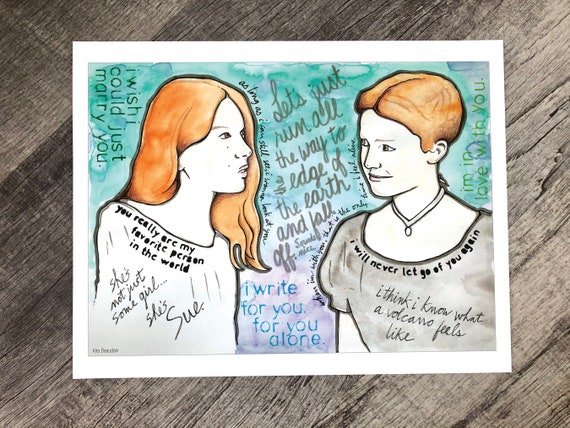 i wish i
could just
marry you.
as long as i can still see i wanna look at you.
Let's just
run all
the way to
the edge of
the earth
and fall
off.
Sounds
nice.
when i'm with you, that is the only time i feel alive
im in
love with you.
you really are my
favorite person
in the world
she's
not just
some girl...
she's
Sue.
i write
for you.
for you
alone.
i will never let go of you again
i think i know what
a volcano feels
like